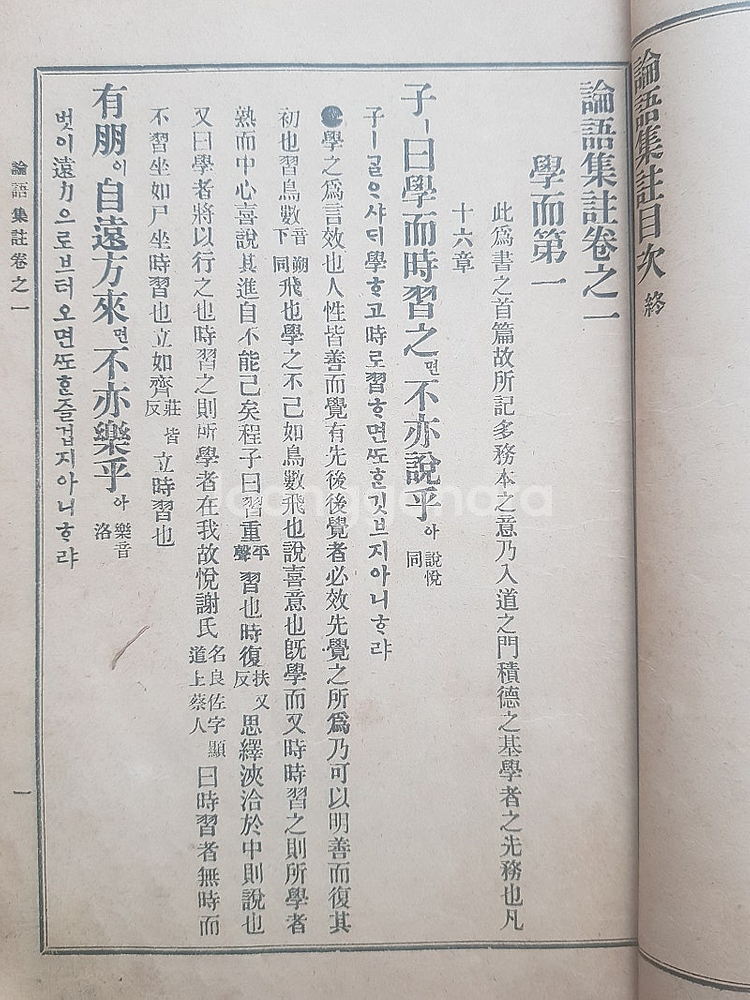 論語集註目次 終
論語集註卷之一
學而第一
此爲書之首篇故所記多務本之意乃入道之門積德之基學者之先務也凡
十六章
子ㅣ曰學而時習之면不亦說乎아 說悅同
子ㅣᄀᆞᆯᄋᆞ샤ᄃᆡ學ᄒᆞ고時로習ᄒᆞ면ᄯᅩᄒᆞᆫ깃브지아니ᄒᆞ랴
●學之爲言效也人性皆善而覺有先後後覺者必效先覺之所爲乃可以明善而復其
初也習鳥數音朔下同飛也學之不已如鳥數飛也說喜意也旣學而又時時習之則所學者
熟而中心喜說其進自不能已矣程子曰習重平聲習也時復扶又反思繹浹洽於中則說也
又曰學者將以行之也時習之則所學者在我故悅謝氏名良佐字顯道上蔡人曰時習者無時而
不習坐如尸坐時習也立如齊莊皆反立時習也
有朋이自遠方來면不亦樂乎아 樂音洛
벗이遠方으로브터오면ᄯᅩᄒᆞᆫ즐겁지아니ᄒᆞ랴
論語集註卷之一
一